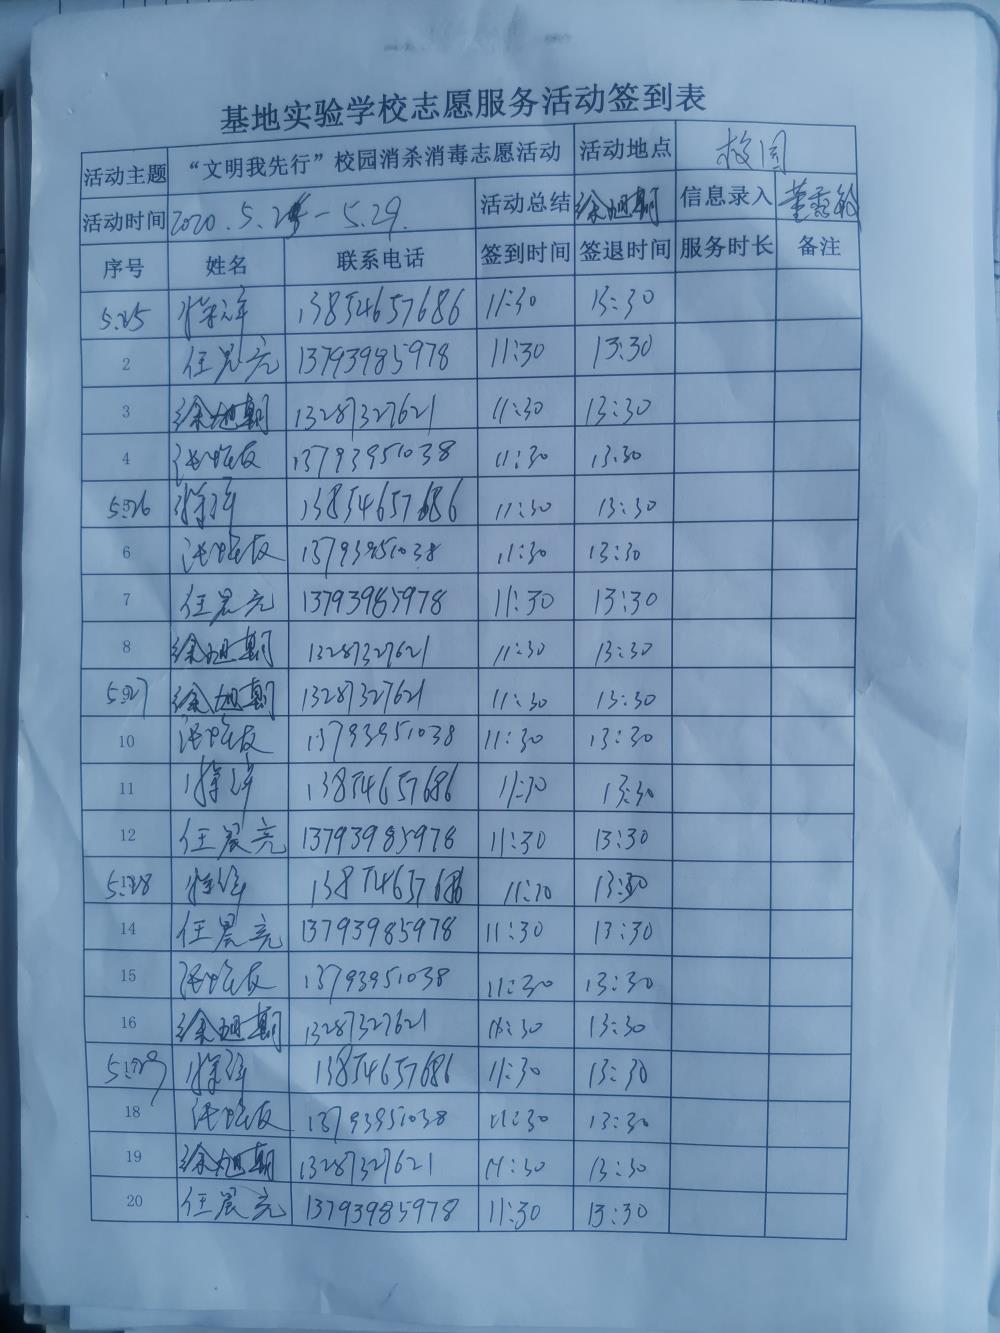 基地实验学校志愿服务活动签到表
活动主题 “文明我先行”校园消杀消毒志愿活动 活动地点 校园
活动时间 2020.5.25-5.29. 活动总结 徐旭期 信息录入
序号 姓名 联系电话 签到时间 签退时间 服务时长 备注
5.25 13854657686 11:30 13:30
2 任晨亮 13793985978 11:30 13:30
3 徐旭期 13287327621 11:30 13:30
4 13793951038 11:30 13:30
5.26 13854657686 11:30 13:30
6 13793951038 11:30 13:30
7 任晨亮 13793985978 11:30 13:30
8 徐旭期 13287327621 11:30 13:30
5.27 徐旭期 13287327621 11:30 13:30
10 13793951038 11:30 13:30
11 13854657686 11:30 13:30
12 任晨亮 13793985978 11:30 13:30
5.28 13854657686 11:30 13:30
14 任晨亮 13793985978 11:30 13:30
15 13793951038 11:30 13:30
16 徐旭期 13287327621 11:30 13:30
5.29 13854657686 11:30 13:30
18 13793951038 11:30 13:30
19 徐旭期 13287327621 11:30 13:30
20 任晨亮 13793985978 11:30 13:30